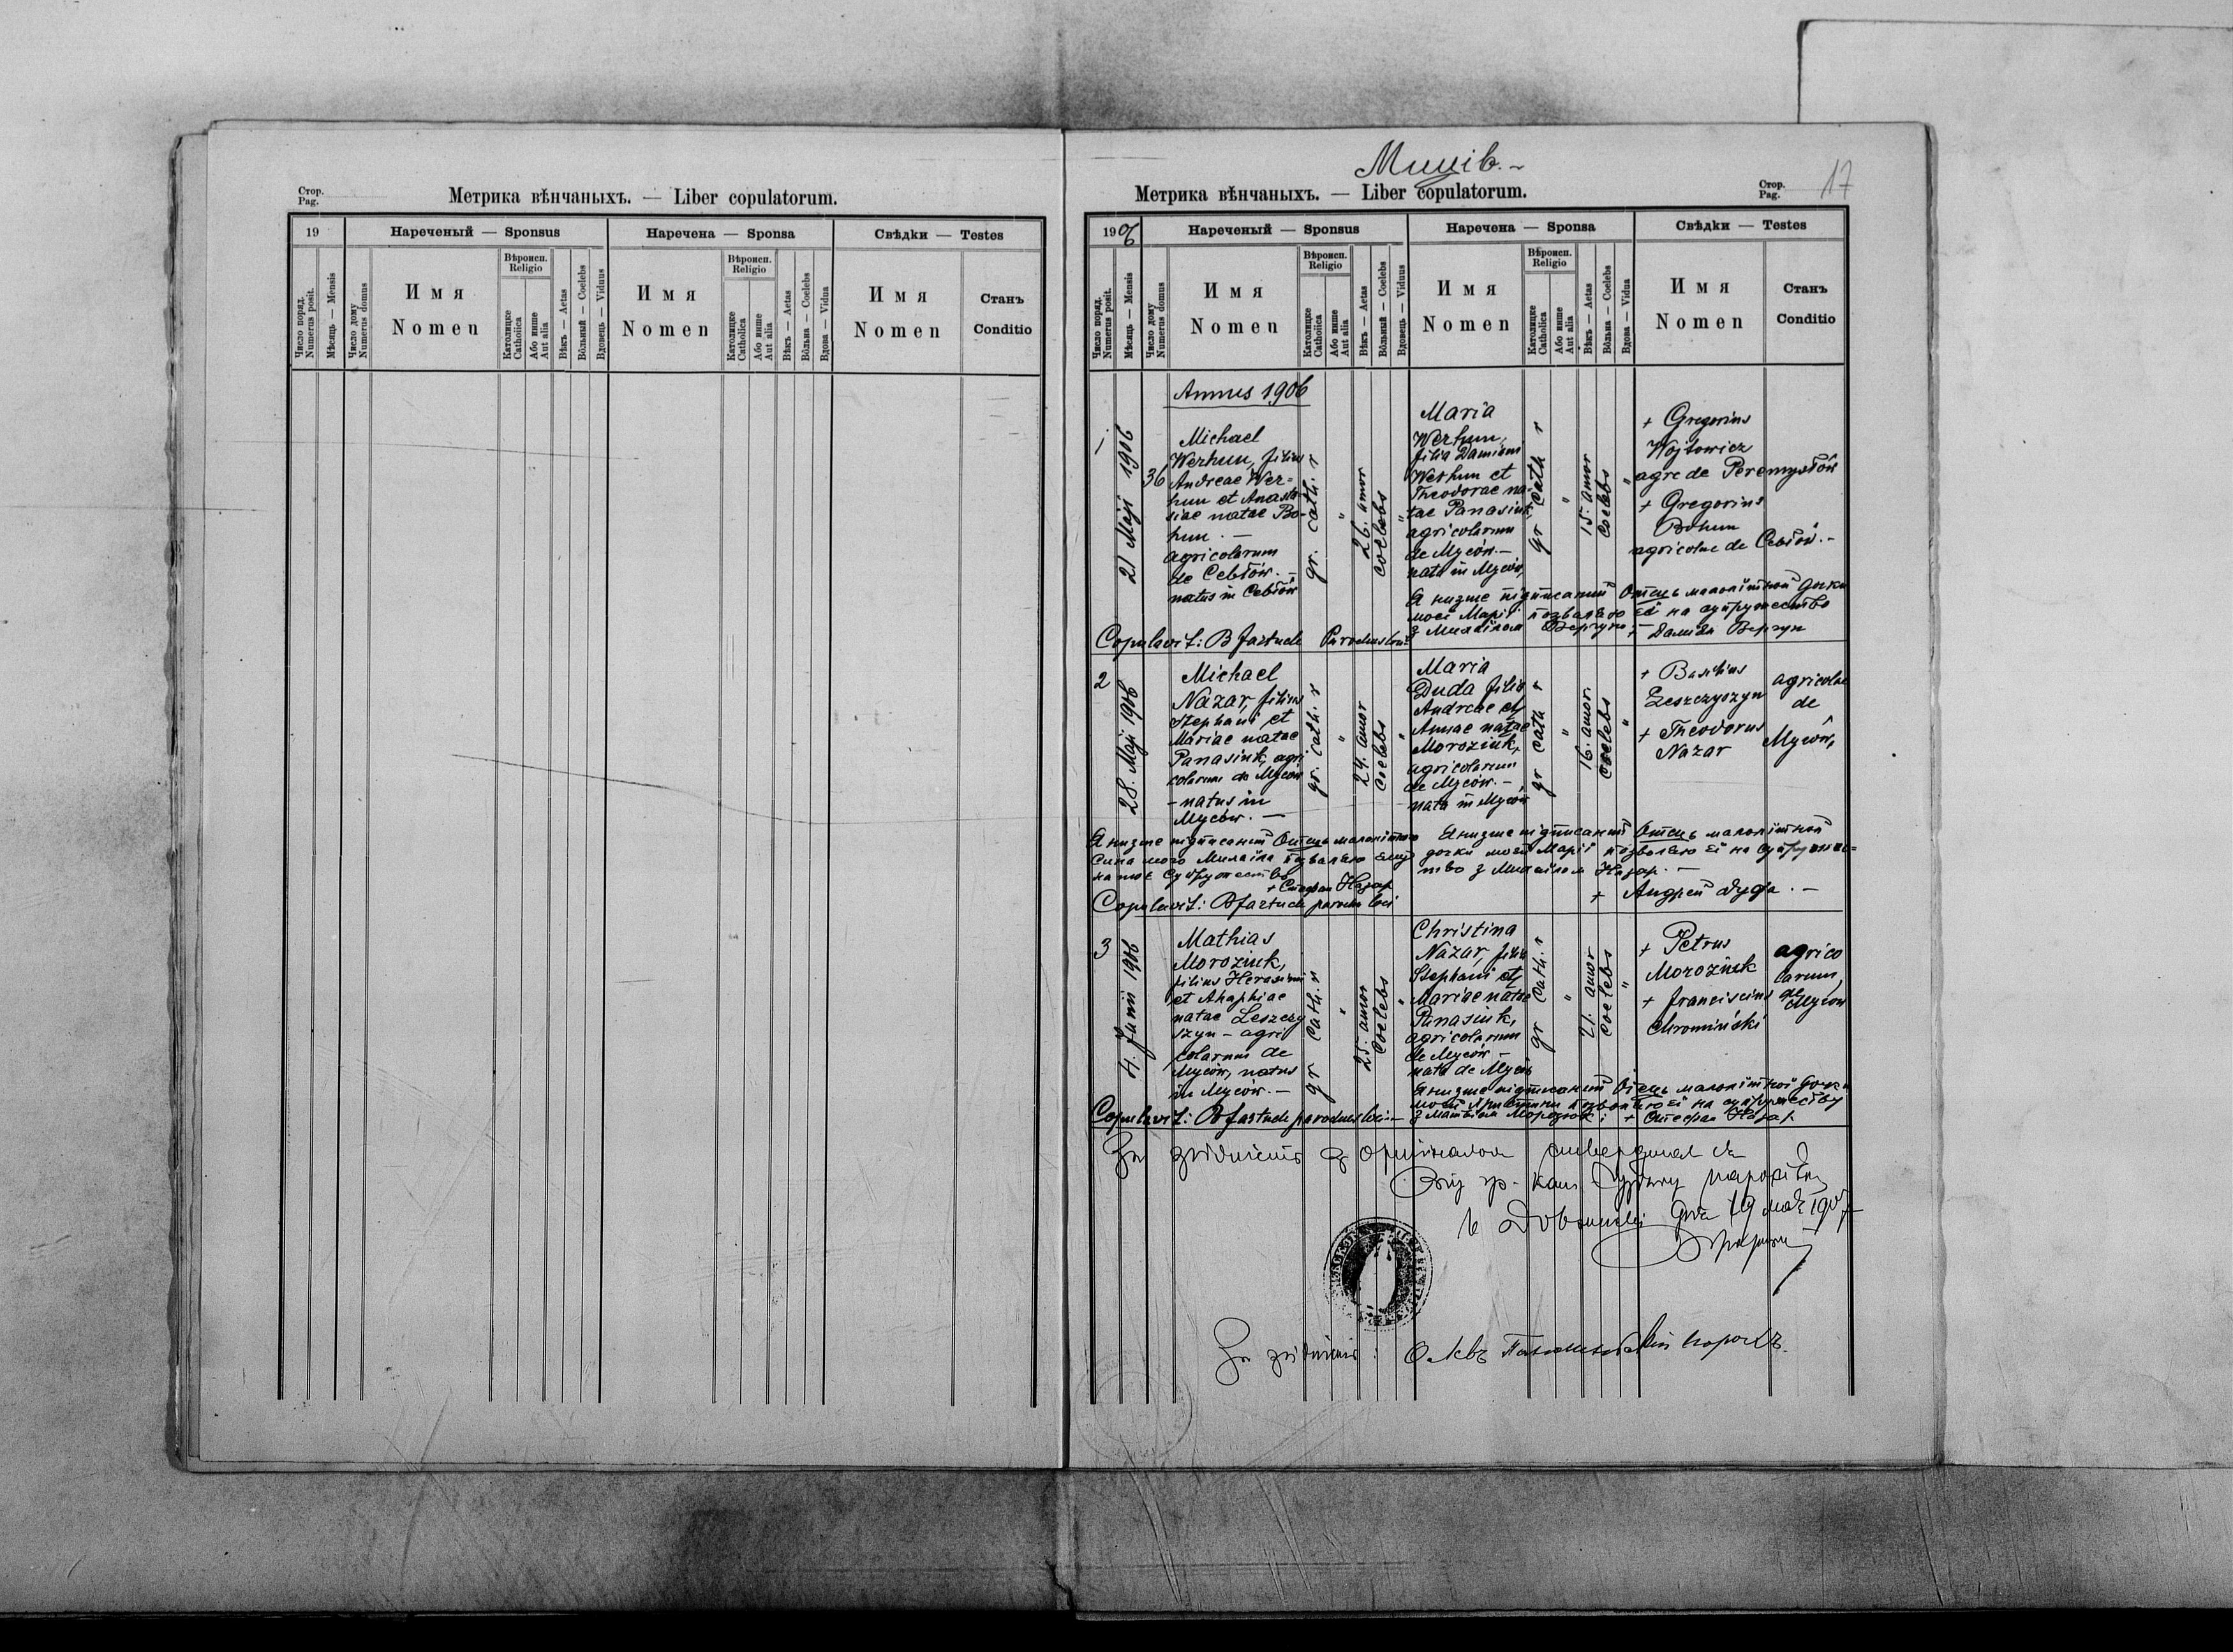 Стор.
Pag.
Метрика вѣнчаныхъ. — Liber copulatorum.
19
Нареченый — Sponsus
Наречена — Sponsa
Свѣдки — Testes
Число поряд.
Numerus posit.
Мѣсяць — Mensis
Число дому
Numerus domus
Имя
Nomen
Вѣроисп.
Religio
Католицке
Catholica
Або инше
Aut alia
Вѣкъ — Aetas
Вôльный — Coelebs
Вдовець — Viduus
Имя
Nomen
Вѣроисп.
Religio
Католицке
Catholica
Або инше
Aut alia
Вѣкъ — Aetas
Вôльна — Coelebs
Вдова — Vidua
Имя
Nomen
Станъ
Conditio
Миців.-
Метрика вѣнчаныхъ. — Liber copulatorum.
Стор.
Pag.
17
1906
Нареченый — Sponsus
Наречена — Sponsa
Свѣдки — Testes
Число поряд.
Numerus posit.
Мѣсяць — Mensis
Число дому
Numerus domus
Имя
Nomen
Вѣроисп.
Religio
Католицке
Catholica
Або инше
Aut alia
Вѣкъ — Aetas
Вôльный — Coelebs
Вдовець — Viduus
Имя
Nomen
Вѣроисп.
Religio
Католицке
Catholica
Або инше
Aut alia
Вѣкъ — Aetas
Вôльна — Coelebs
Вдова — Vidua
Имя
Nomen
Станъ
Conditio
Annus 1906
1
21 Maji 1906
36
Michael
Werhun, filius
Andreae Wer=
hun et Anasta
siae natae Bo-
hun. —
agricolarum
de Cebłów. —
natus in Cebłów
gr. cath. r
"
26. annor
coelebs
"
Maria
Werhun,
filia Damiani
Werhun et
Theodorae na
tae Panasiuk,
agricolarum
de Myców. —
nata in Myców,
gr cath r
"
15. annor
coelebs
"
+ Gregorius
Wojtowicz
agr. de Peremysłów
+ Gregorius
Bohun
agricolae de Cebłów. -
Я низше підписаний Отець малолітної дочки
моєї Марії позваляю єй на супружество
з Михайлом Вергун: + Дамян Вергун
Copulavit: Parochus loci
2
28. Maji 1906
Michael
Nazar, filius
Stephani et
Mariae natae
Panasiuk, agri
colarum de Myców
- natus in
Myców. —
gr. cath. r
"
24. annor
coelebs
"
Maria
Duda filia
Andreae et
Annae natae
Moroziuk,
agricolarum
de Myców. —
nata in Myców
gr cath r
"
16. annor.
coelebs
"
+ Basilius
Leszczyszyn
+ Theodorus
Nazar
agricolae
de
Myców,
Я низше підписаний Отець малолітного
сина мого Михайла позваляю єму
на тоє супружество
+ Стефан Назар
Я низше підписаний Отець малолітної
дочки моєї Марії позваляю єй на супружес=
тво з Михайлом Назар. —
+ Андрей Дуда. —
Copulavit: parochus loci
3
4. Junii 1906
Mathias
Moroziuk,
filius Herasimi
et Ahaphiae
natae Leszczy
szyn - agri
colarum de
Myców, natus
in Myców. —
gr cath. r
"
25. annor
coelebs
"
Christina
Nazar, filia
Stephani et
Mariae natae
Panasiuk,
agricolarum
de Myców —
nata de Myców
gr cath. r
"
21. annor
coelebs
"
+ Petrus
Moroziuk
+ Franciscus
Chromiński
agrico
larum,
de Myców
Я низше підписаний Отець малолітної дочки
моєї Христини позваляю єй на супружество
з Матвієм Морозюк: + Стефан Назар
Copulavit: parochus loci —
За згідність з оригіналом
гр. кат.
дня 19 мая 1907
За згідність: